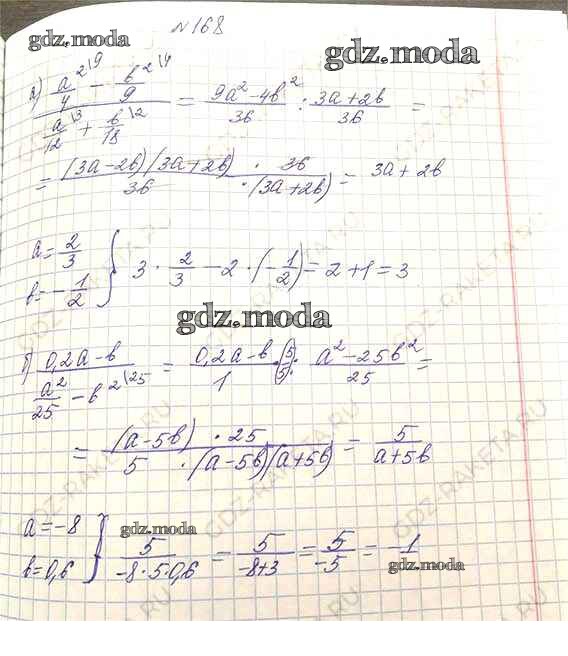 №168
gdz.moda gdz.moda
а) (a²\9/4 − b²\4/9)/(a\3/12 + b\2/18) = (9a² − 4b²)/36 : (3a + 2b)/36 =
= (3a − 2b)(3a + 2b)/36 · 36/(3a + 2b) = 3a + 2b
a = 2/3
b = −1/2 } 3 · 2/3 − 2 · (−1/2) = 2 + 1 = 3
gdz.moda
б) (0,2a − b)/(a²/25 − b²\25) = (0,2a − b)/1 · (5/5) : (a² − 25b²)/25 =
= (a − 5b) · 25/5 · (a − 5b)(a + 5b) = 5/(a + 5b)
a = −8
b = 0,6 } 5/(−8 · 5 · 0,6) = 5/(−8 + 3) = 5/−5 = − 1
gdz.moda
gdz.moda
GDZ-RAKETA.RU